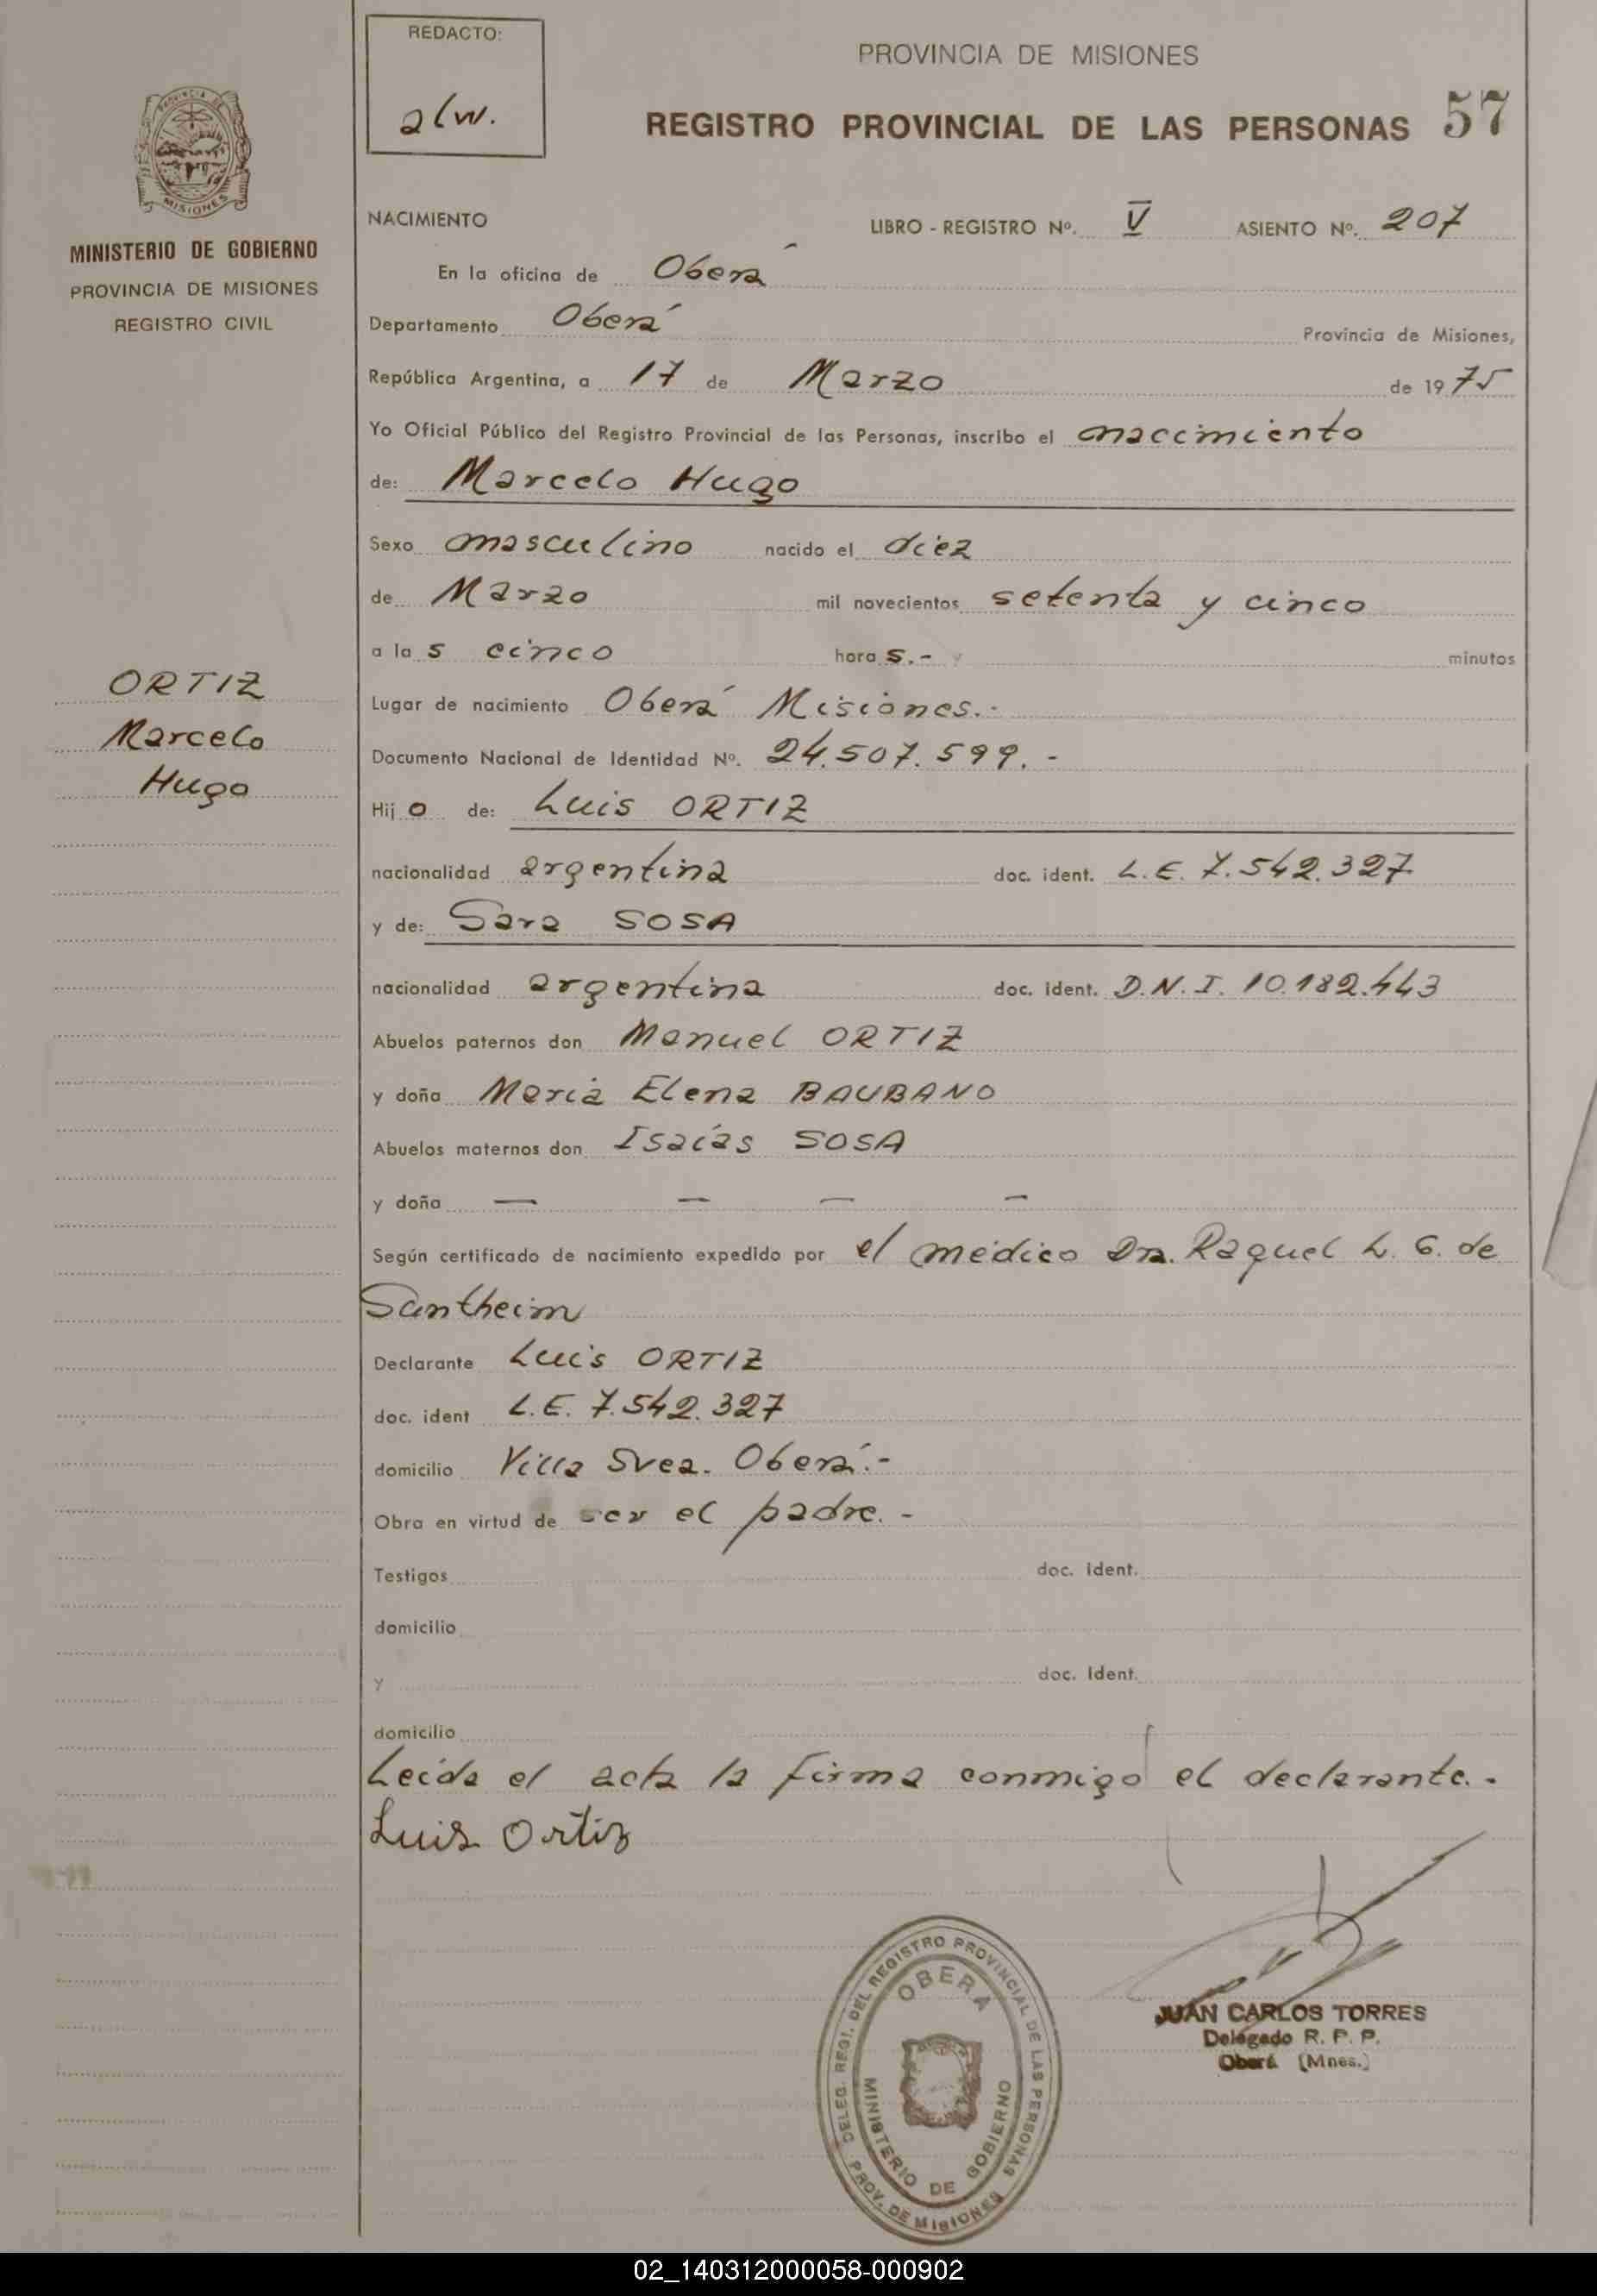 REDACTO:
alw.
PROVINCIA DE MISIONES
REGISTRO PROVINCIAL DE LAS PERSONAS 57
PROVINCIA DE
MISIONES
MINISTERIO DE GOBIERNO
PROVINCIA DE MISIONES
REGISTRO CIVIL
ORTIZ
Marcelo
Hugo
NACIMIENTO LIBRO - REGISTRO Nº. V ASIENTO Nº. 207
En la oficina de Oberá
Departamento Oberá Provincia de Misiones,
República Argentina, a 17 de Marzo de 1975
Yo Oficial Público del Registro Provincial de las Personas, inscribo el nacimiento
de: Marcelo Hugo
Sexo masculino nacido el diez
de Marzo mil novecientos setenta y cinco
a las cinco horas.- y minutos
Lugar de nacimiento Oberá Misiones.-
Documento Nacional de Identidad Nº. 24.507.599.-
Hijo de: Luis ORTIZ
nacionalidad argentina doc. ident. L.E. 7.542.327
y de: Sara SOSA
nacionalidad argentina doc. ident. D.N.I. 10.182.443
Abuelos paternos don Manuel ORTIZ
y doña Maria Elena BAUBANO
Abuelos maternos don Isaías SOSA
y doña — — — —
Según certificado de nacimiento expedido por el médico Dra. Raquel L. G. de
Santheim
Declarante Luis ORTIZ
doc. ident L.E. 7.542.327
domicilio Villa Svea. Oberá.-
Obra en virtud de ser el padre.-
Testigos doc. ident.
domicilio
y doc. Ident.
domicilio
Leída el acta la firma conmigo el declarante.-
Luis Ortiz
DELEG. REGI. DEL REGISTRO PROVINCIAL DE LAS PERSONAS
PROV. DE MISIONES
OBERA
MINISTERIO DE GOBIERNO
JUAN CARLOS TORRES
Delegado R. P. P.
Oberá (Mnes.)
02_140312000058-000902